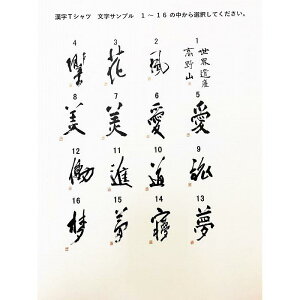 漢字Tシャツ 文字サンプル 1～16の中から選択してください。
4 3 2 1
樂 花 風 世界遺産
高野山
8 7 6 5
美 美 愛 愛
12 11 10 9
働 進 道
16 15 14 13
梦 夢 夢